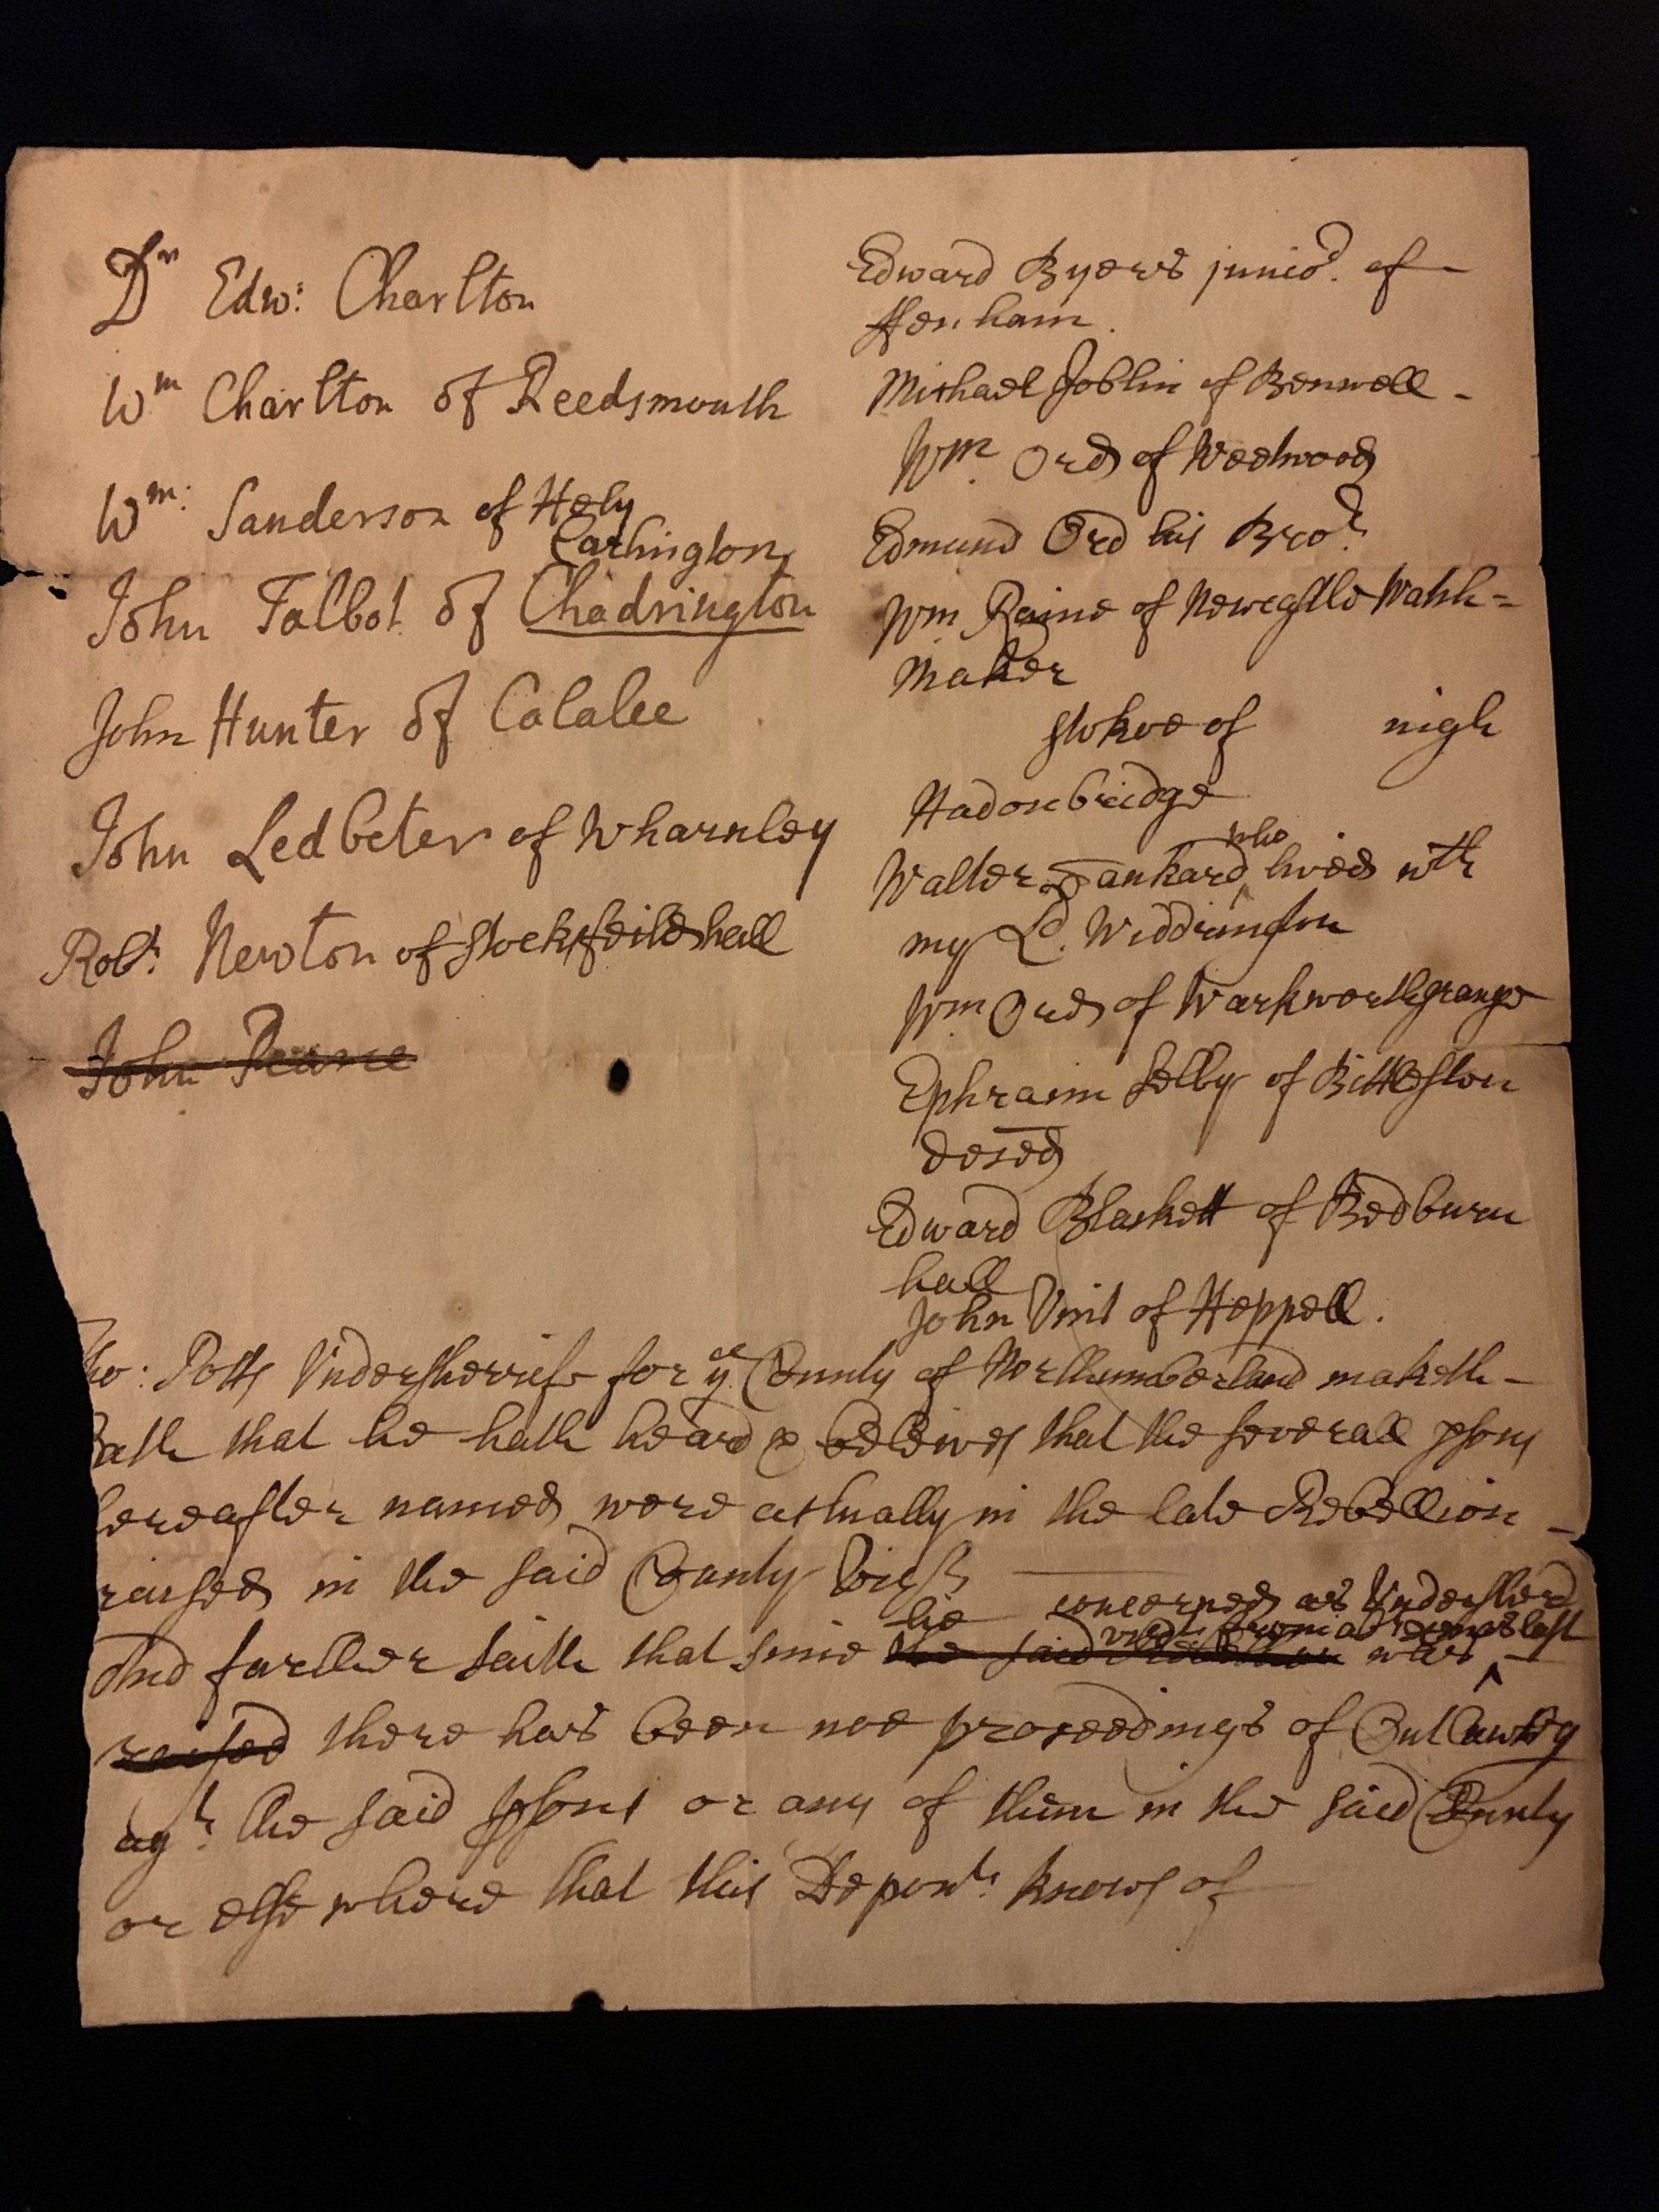 Dr Edw: Charlton
Wm Charlton of Reedsmouth
Wm: Sanderson of Hely
Cartington
John Talbot of Chadrington
John Hunter of Calalee
John Ledbeter of Wharnley
Robt: Newton of Stocksfeildhall
John Pearce
Edward Byers junior. of
Henham.
Michael Joblin of Benwell -
Wm Ord of Weetwood
Edmund Ord his Bror
Wm Raine of Newcastle Watch=
maker
Stokoe of nigh
Hadonbridge
who
Walter Tankard lived wth
my Ld. Widdrington
Wm Ord of Warkworthgrange
Ephraim Selby of Bittleston
Deced
Edward Blackett of Bedburn
hall
John Unit of Heppell.
Tho: Potts Undersherriff for ye County of Northumberland maketh -
Oath that he hath heard & beleives that the severall psons
hereafter named were actually in the late Rebellion -
raised in the said County vizt
he concerned as Undersherr
last
And further saith that since the said Rebellion was
raised there has been noe proceedings of Outlawry
agt: the said psons or any of them in the said County
or elsewhere that this Depont: knows of